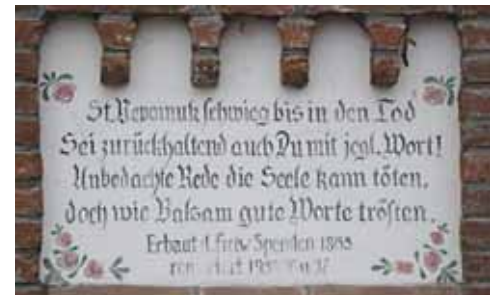 St. Nepomuk schwieg bis in den Tod
Sei zurückhaltend auch Du mit jegl. Wort!
Unbedachte Rede die Seele kann töten,
doch wie Balsam gute Worte trösten.
Erbaut d. freiw. Spenden